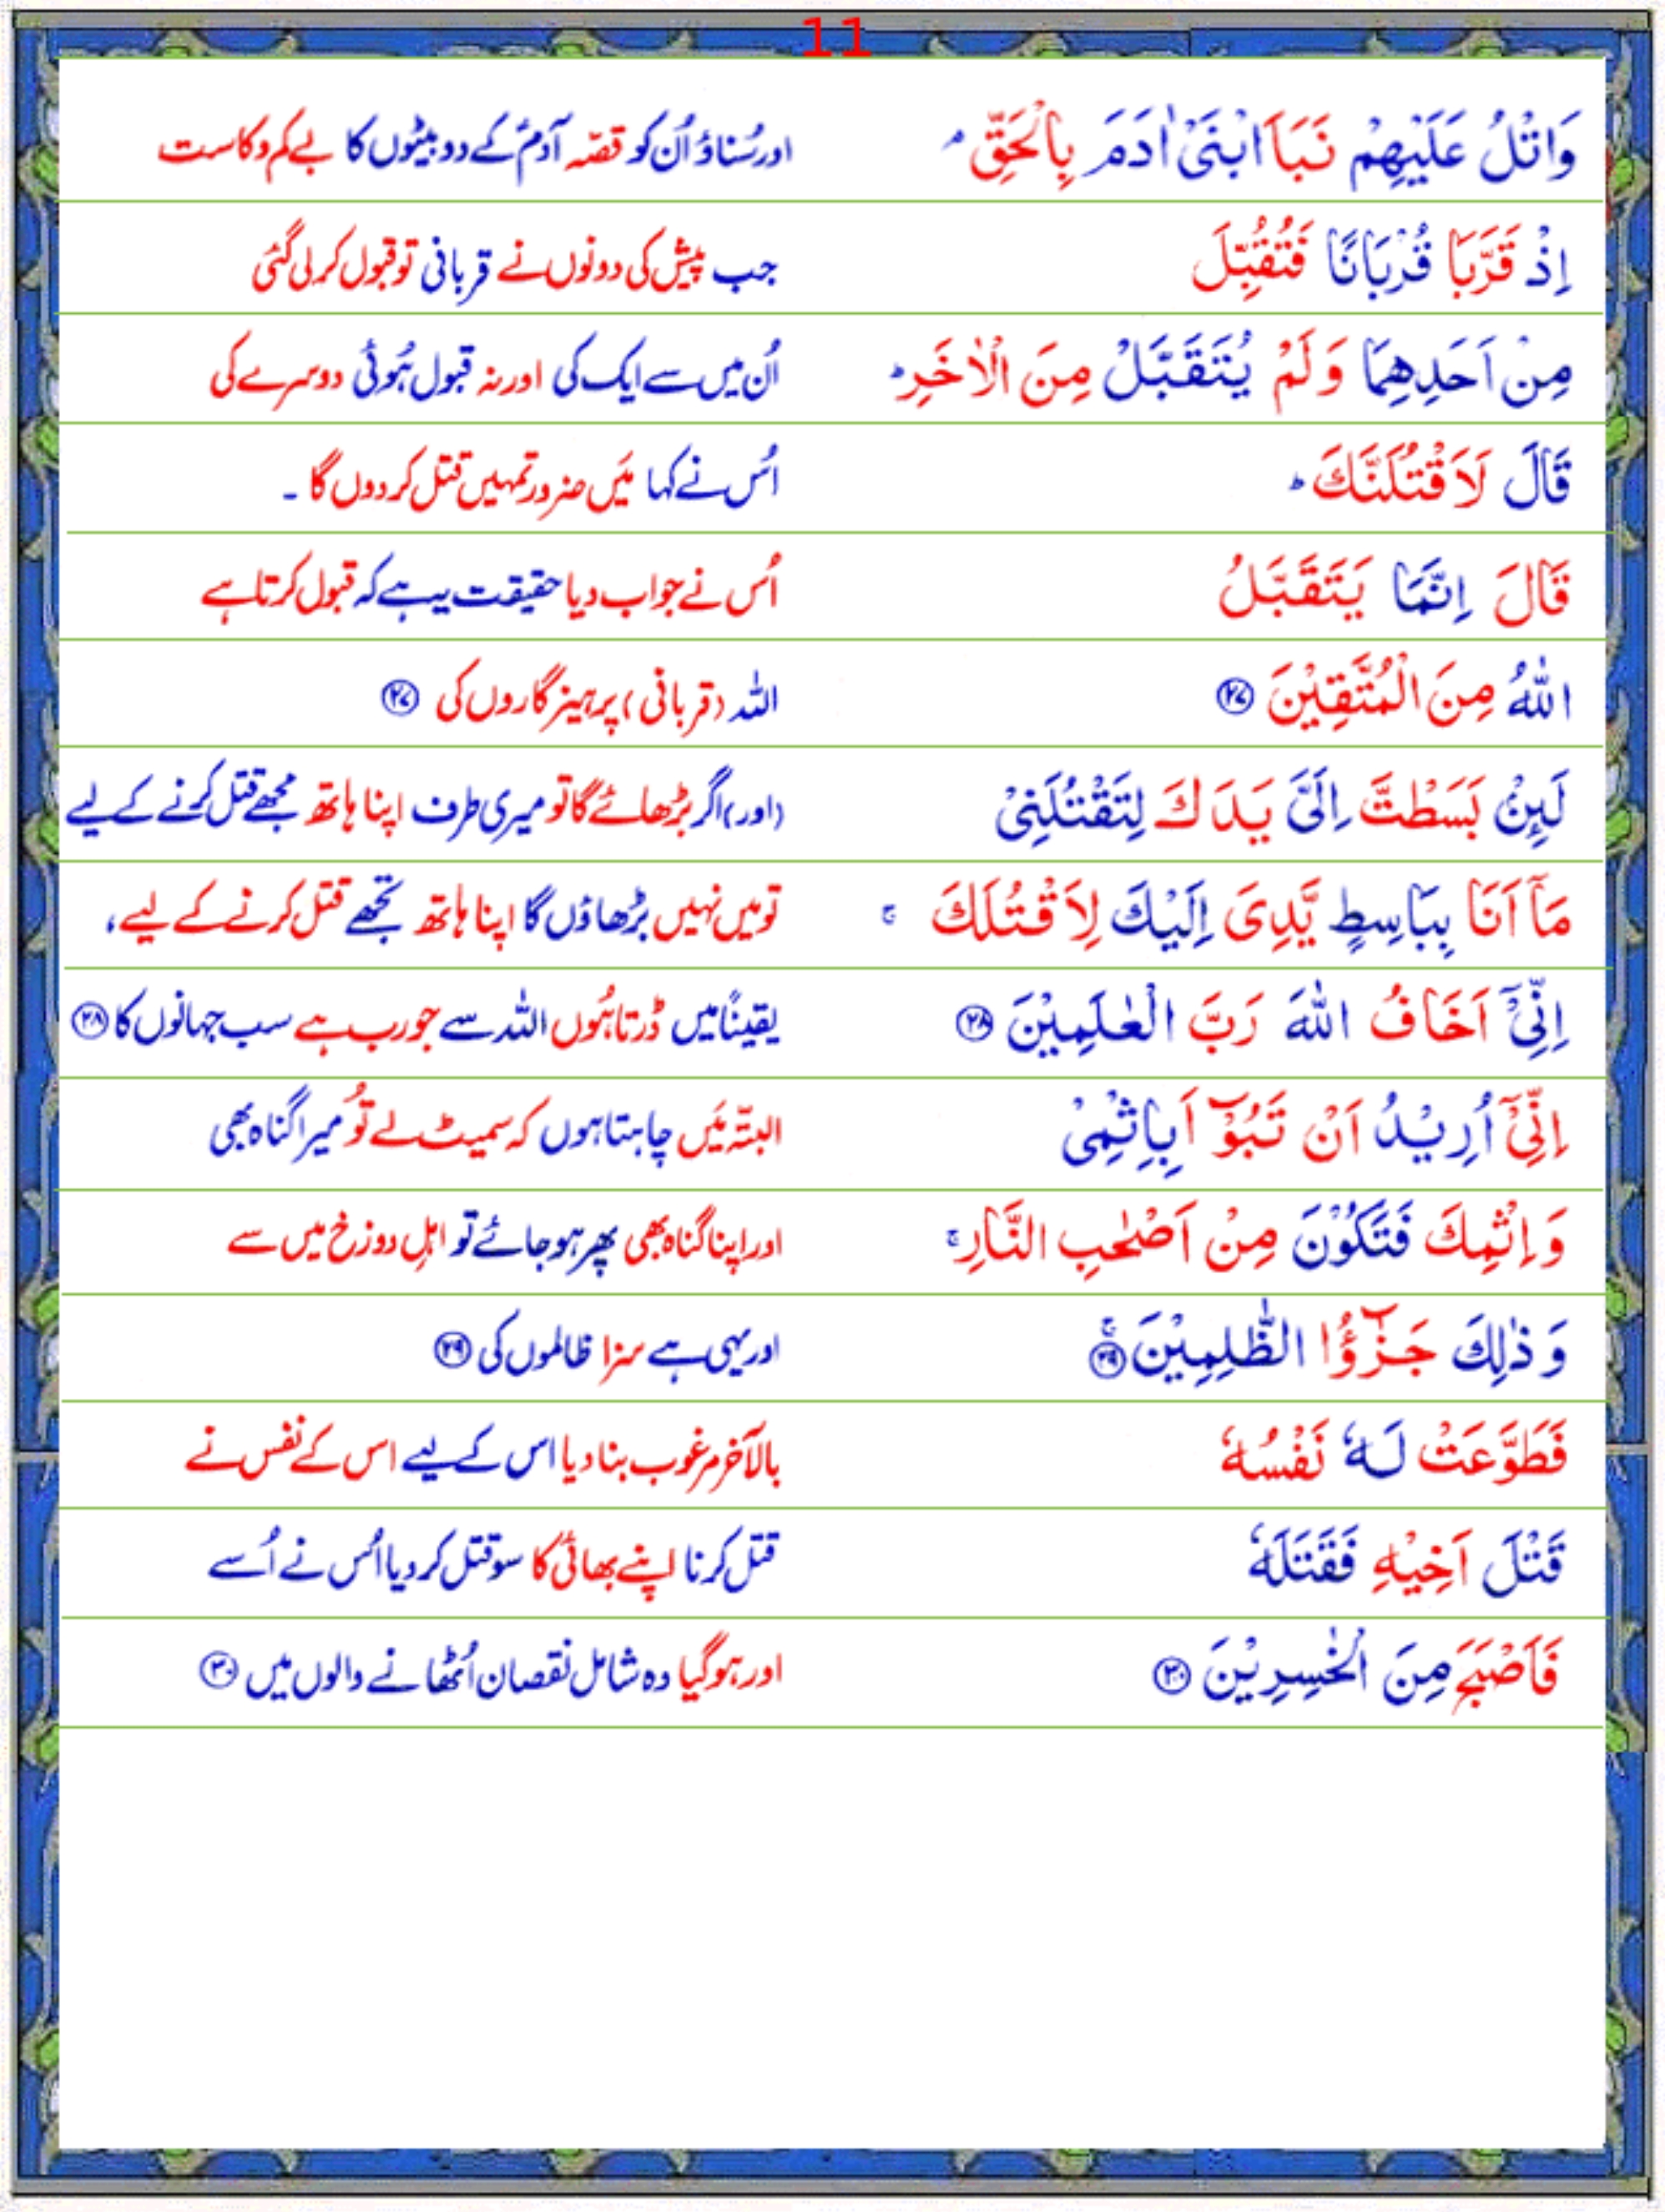 11
وَاتْلُ عَلَيْهِمْ نَبَاَ ابْنَيْ اٰدَمَ بِالْحَقِّ ۘ اور سُناؤ اُن کو قصّہ آدمؑ کے دو بیٹوں کا بے کم و کاست
اِذْ قَرَّبَا قُرْبَانًا فَتُقُبِّلَ جب پیش کی دونوں نے قربانی تو قبول کر لی گئی
مِنْ اَحَدِهِمَا وَلَمْ يُتَقَبَّلْ مِنَ الْاٰخَرِ ؕ اُن میں سے ایک کی اور نہ قبول ہُوئی دوسرے کی
قَالَ لَاَقْتُلَنَّكَ ؕ اُس نے کہا مَیں ضرور تمہیں قتل کر دوں گا ۔
قَالَ اِنَّمَا يَتَقَبَّلُ اُس نے جواب دیا حقیقت یہ ہے کہ قبول کرتا ہے
اللّٰهُ مِنَ الْمُتَّقِيْنَ ۲۷ اللہ (قربانی) پرہیزگاروں کی ۲۷
لَئِنْۢ بَسَطْتَّ اِلَيَّ يَدَكَ لِتَقْتُلَنِيْ (اور) اگر بڑھائے گا تو میری طرف اپنا ہاتھ مجھے قتل کرنے کے لیے
مَاۤ اَنَا بِبَاسِطٍ يَّدِيَ اِلَيْكَ لِاَقْتُلَكَ ۚ تو میں نہیں بڑھاؤں گا اپنا ہاتھ تجھے قتل کرنے کے لیے،
اِنِّيْۤ اَخَافُ اللّٰهَ رَبَّ الْعٰلَمِيْنَ ۲۸ یقینًا میں ڈرتا ہُوں اللہ سے جو رب ہے سب جہانوں کا ۲۸
اِنِّيْۤ اُرِيْدُ اَنْ تَبُوْٓاَ بِاِثْمِيْ البتّہ مَیں چاہتا ہوں کہ سمیٹ لے تُو میرا گناہ بھی
وَاِثْمِكَ فَتَكُوْنَ مِنْ اَصْحٰبِ النَّارِ ۚ اور اپنا گناہ بھی پھر ہو جائے تو اہلِ دوزخ میں سے
وَذٰلِكَ جَزٰٓؤُا الظّٰلِمِيْنَ ۚ ۲۹ اور یہی ہے سزا ظالموں کی ۲۹
فَطَوَّعَتْ لَهٗ نَفْسُهٗ بالآخر مرغوب بنا دیا اس کے لیے اس کے نفس نے
قَتْلَ اَخِيْهِ فَقَتَلَهٗ قتل کرنا اپنے بھائی کا سو قتل کر دیا اُس نے اُسے
فَاَصْبَحَ مِنَ الْخٰسِرِيْنَ ۳۰ اور ہو گیا وہ شامل نقصان اُٹھانے والوں میں ۳۰